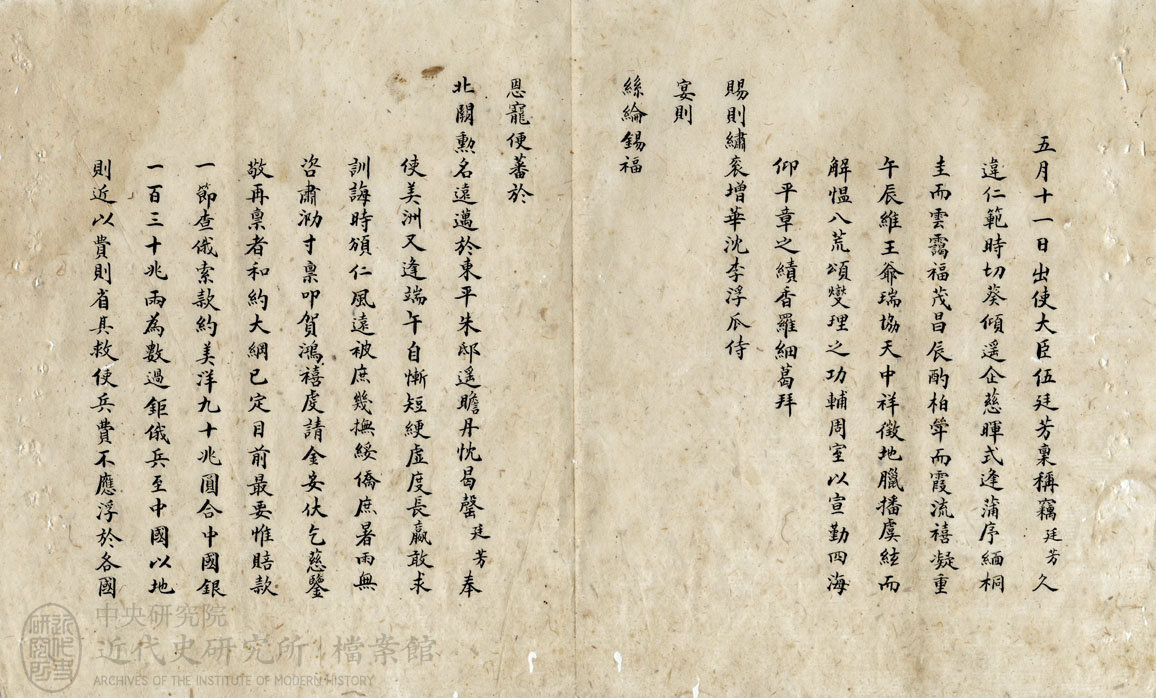 五月十一日出使大臣伍廷芳稟稱竊廷芳久
違仁範時切葵傾遥企慈暉式逢蒲序緬桐
圭而雲靄福茂昌辰酌柏斝而霞流禧凝重
午辰維王爺瑞協天中祥徵地臘播虞絃而
解愠八荒頌燮理之功輔周室以宣勤四海
仰平章之績香羅細葛拜
賜則繡衮增華沈李浮瓜侍
宴則
絲綸錫福
恩寵便蕃於
北闕勲名遠邁於東平朱邸遥瞻丹忱曷罄廷芳奉
使美洲又逢端午自慚短綆虛度長羸敢求
訓誨時頒仁風遠被庶幾撫綏僑庶暑雨無
咨肅泐寸稟叩賀鴻禧虔請金安伏乞慈鑒
敬再稟者和約大綱已定目前最要惟賠款
一節查俄索款約美洋九十兆圓合中國銀
一百三十兆兩為數過鉅俄兵至中國以地
則近以費則省其救使兵費不應浮於各國
中央研究院
近代史研究所 檔案館
ARCHIVES OF THE INSTITUTE OF MODERN HISTORY